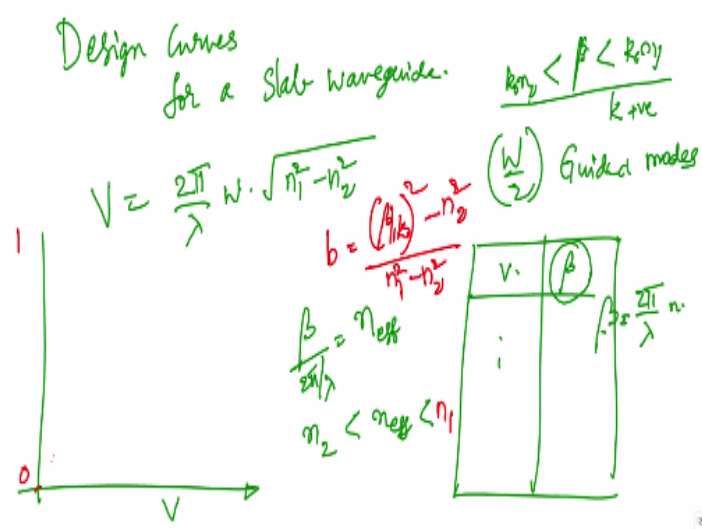 Design Curves
for a Slab waveguide.
k₀n₂ < β < k₀n₁
k +ve
V = 2π/λ W. √(n₁² - n₂²)
(W/2) Guided modes
1
b = ((β/k₀)² - n₂²)/(n₁² - n₂²)
V. β
β = 2π/λ n.
β/(2π/λ) = neff
n₂ < neff < n₁
0
V